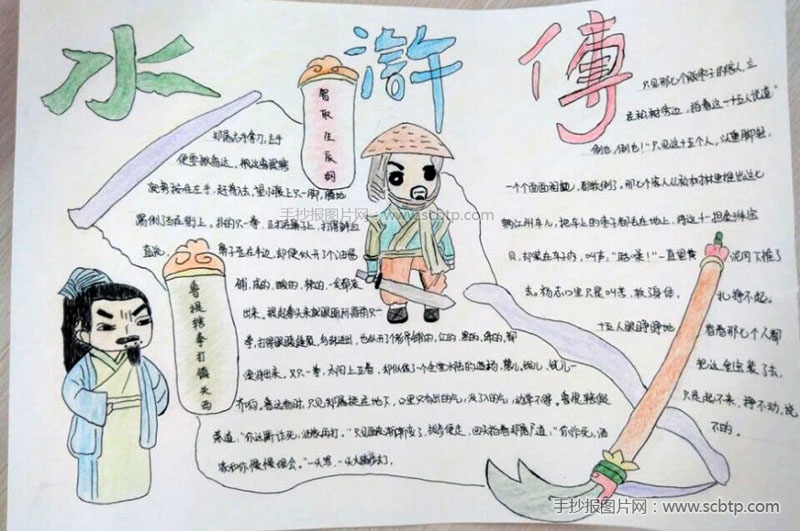 水滸傳
智取生辰纲
只见那七个贩枣子的客人,立
在松树旁边,指着这一十五人说道
倒也!倒也!"只见这十五个人,头重脚轻,
一个个面面相觑,都软倒了。那七个客人从松树林里推出这七
辆江州车儿,把车上的枣子都丢在地上,将这十一担金珠宝
贝,却装在车子内,叫声:"聒噪!"一直望黄泥冈下推了
去。杨志口里只是叫苦,软了身体,扎挣不起。
十五人眼睁睁地看着那七个人都
把这金宝装了去,
只是起不来,挣不动,说
不的。
郑屠右手拿刀,左手
便要揪鲁达,被这鲁提辖
就势按住左手,赶将入去,望小腹上只一脚,腾地
踢倒了在街上。
直流,鼻子歪在半边,却便似开了个油酱
铺,咸的、酸的、辣的,一发都滚
出来。提起拳头来就眼眶际眉梢只一
拳,打得眼睖缝裂,乌珠迸出,也似开了个彩帛铺的,红的、黑的、绛的,都
滚将出来。又只一拳,太阳上正着,却似做了一个全堂水陆的道场,磬儿、钹儿、铙儿一
齐响。鲁达看时,只见郑屠挺在地下,口里只有出的气,没了入的气,动弹不得。鲁提辖假
意道:"你这厮诈死,洒家再打。"只见面皮渐渐变了,
拔步便走,回头指着郑屠尸道:"你诈死,洒
家和你慢慢理会。"一头骂,一头大踏步去了。
鲁提辖拳打镇关西
手抄报图片网:www.scbtp.com
手抄报图片网:www.scbtp.com